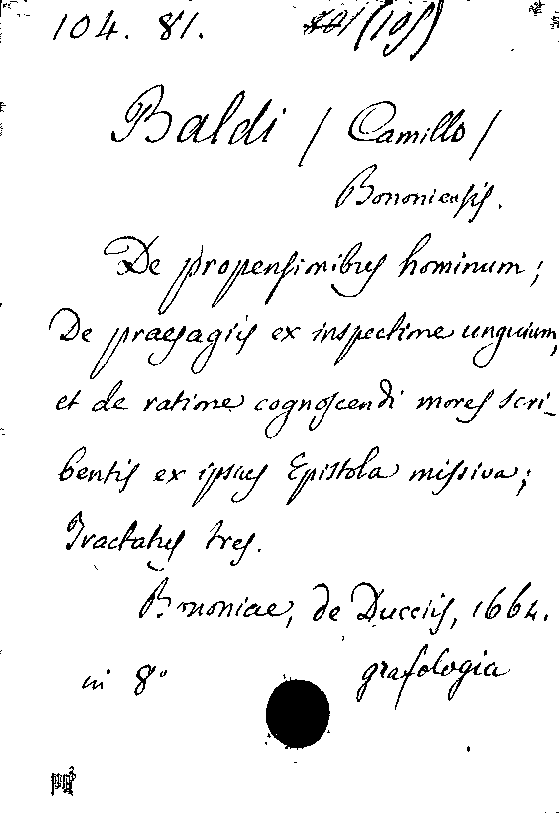 104. 81. (105)
Baldi / Camillo /
Bononiensis.
De propensionibus hominum;
De praesagiis ex inspectione unguium,
et de ratione cognoscendi mores scri-
bentis ex ipsius Epistola missiva;
Tractatus tres.
Bononiae, de Ducciis, 1664.
in 8°
grafologia